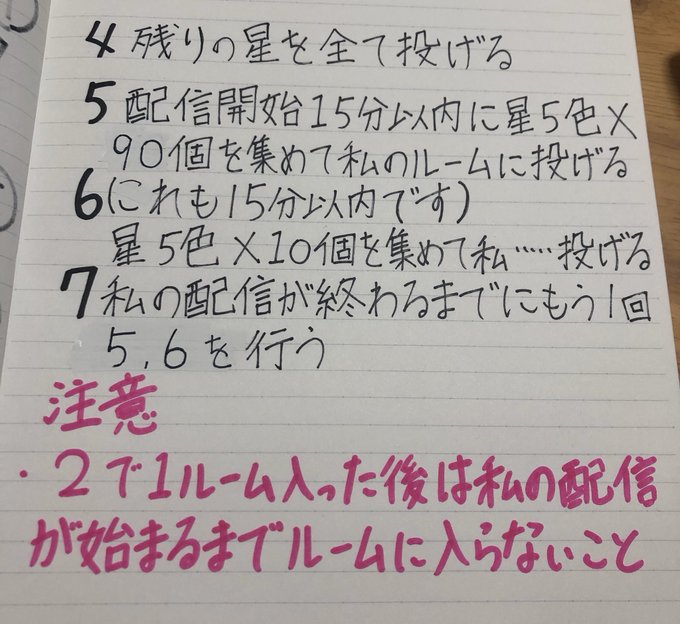 4 残りの星を全て投げる
5 配信開始15分以内に星5色×
90個を集めて私のルームに投げる
6(これも15分以内です)
星5色×10個を集めて私……投げる
7 私の配信が終わるまでにもう1回
5,6を行う
注意
・2で1ルーム入った後は私の配信
が始まるまでルームに入らないこと